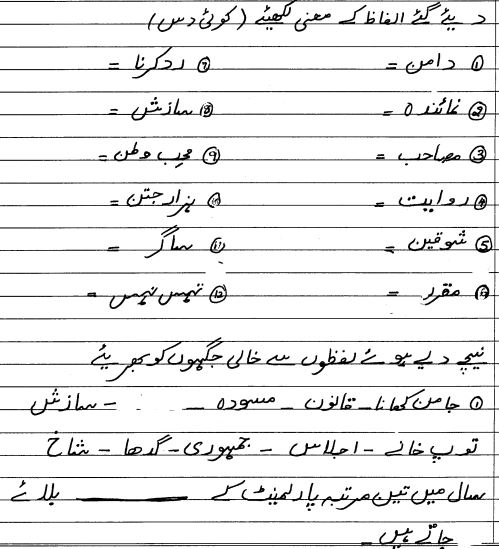 دیئے گئے الفاظ کے معنی لکھیئے (کوئی دس)
① دامن = ⑦ رد کرنا =
② نمائندہ = ⑧ سازش =
③ مصاحب = ⑨ محب وطن =
④ روایت = ⑩ ہزار جتن =
⑤ شوقین = ⑪ ساگر =
مقرر = ⑫ تہس نہس =
نیچے دیے ہوئے لفظوں سے خالی جگہوں کو بھریئے
① جامن کھانا - قانون - مسودہ - - سازش
توپ خانے - اجلاس - جمہوری - گدھا - شاخ
سال میں تین مرتبہ پارلمینٹ کے ــــــــ بلائے
جاتے ہیں -